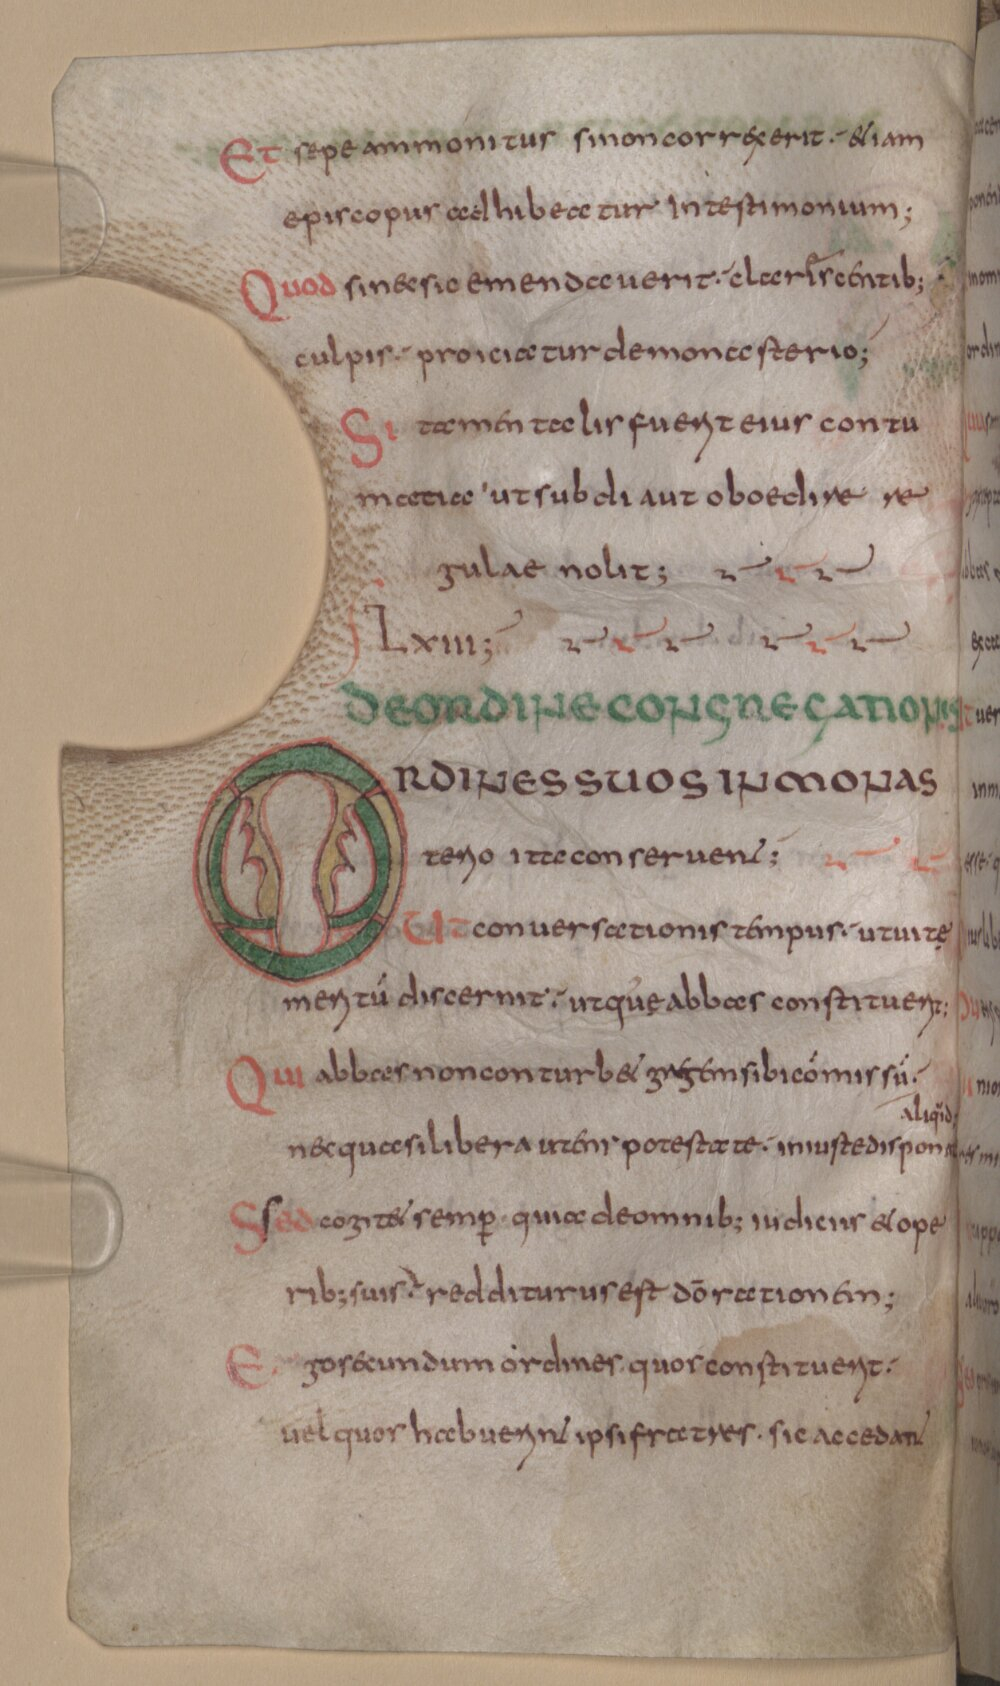 Et sepe ammonitus si non correxerit · etiam
episcopus adhibeatur in testimonium;
Quod si nec sic emendauerit · claríscentib;
culpis · proiciatur de monasterio;
Si tamen talis fuerit eius contu
macia ut subdi aut oboedire re
gulae nolit;
Lxiii;
DE ORDINE CONGREGATIONIS
ORDINES SUOS IN MONAS
terio ita conseruent;
Ut conuersationis tempus · ut uitę
meritū discernit · utque abbas constituerit;
Qui abbas non conturbet gregem sibi cōmissū ·
aliquid;
nec quasi libera utens potestate · iniuste disponat
Sed cogitet semper quia de omnib; iudiciis et ope
rib; suis redditurus est dō rationem;
Ergo secundum ordines quos constituerit ·
uel quos habuerint ipsi fratres · sic accedant